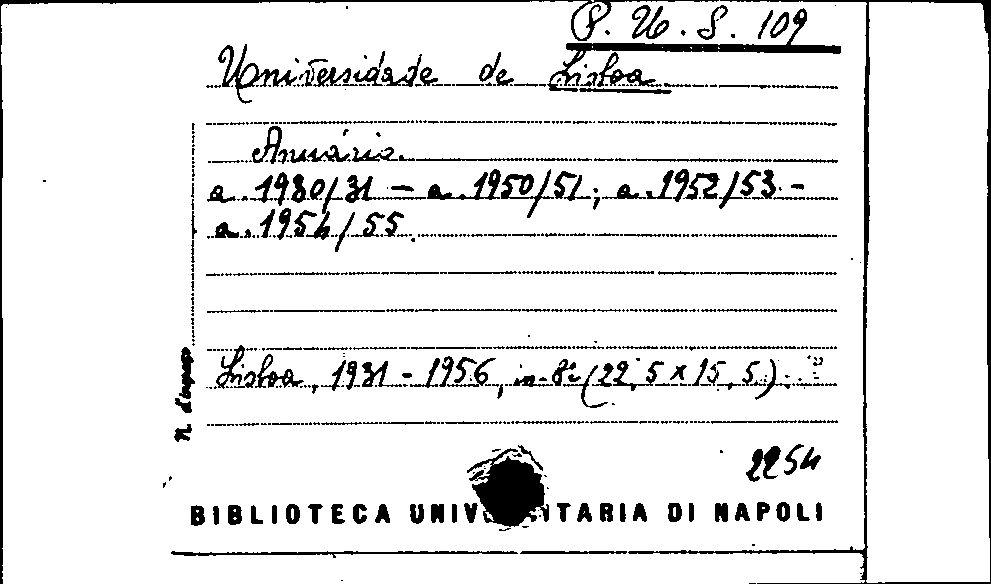 P. U. S. 109
Universidade de Lisboa
Anuário.
a. 1930/31 – a. 1950/51; a. 1952/53 -
a. 1954/55.
Lisboa, 1931 - 1956, in-8º (22,5 x 15,5).
N. d'ingresso
2254
BIBLIOTECA UNIVERSITARIA DI NAPOLI